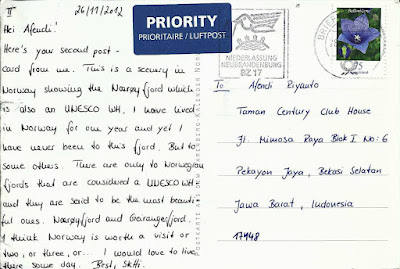 II
26/11/2012
Hei Afendi!
Here's your second post-
card from me. This is a scenery in
Norway showing the Nærøyfjord which
is also an UNESCO WH. I have lived
in Norway for one year and yet I
have never been to this fjord. But to
some others. There are only to Norwegian
fjords that are considered a UNESCO WH
and they are said to be the most beauti
ful ones. Nærøyfjord and Geirangerfjord.
I think Norway is worth a visit or
two, or three, or... I would love to live
there some day. Best,
PRIORITY
PRIORITAIRE / LUFTPOST
NIEDERLASSUNG
NEUBRANDENBURG
BZ 17
BRIEF
Ballonblume
75
To Afendi Riyanto
Taman Century Club House
Jl. Mimosa Raya Blok I No: 6
Pekayon Jaya, Bekasi Selatan
Jawa Barat, Indonesia
17148
POSTKARTE AUS DEM KALENDER